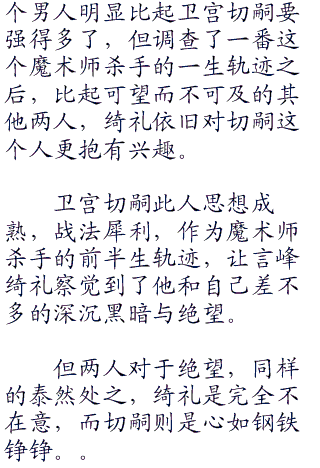 个男人明显比起卫宫切嗣要
强得多了，但调查了一番这
个魔术师杀手的一生轨迹之
后，比起可望而不可及的其
他两人，绮礼依旧对切嗣这
个人更抱有兴趣。
卫宫切嗣此人思想成
熟，战法犀利，作为魔术师
杀手的前半生轨迹，让言峰
绮礼察觉到了他和自己差不
多的深沉黑暗与绝望。
但两人对于绝望，同样
的泰然处之，绮礼是完全不
在意，而切嗣则是心如钢铁
铮铮。。